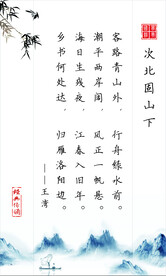 次北固山下
客路青山外，行舟绿水前。
潮平两岸阔，风正一帆悬。
海日生残夜，江春入旧年。
乡书何处达，归雁洛阳边。
——王湾